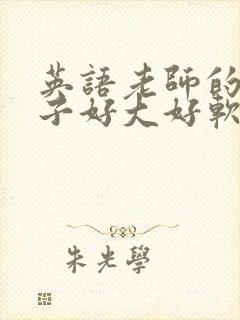 英語老師的
子好大好軟
朱光學